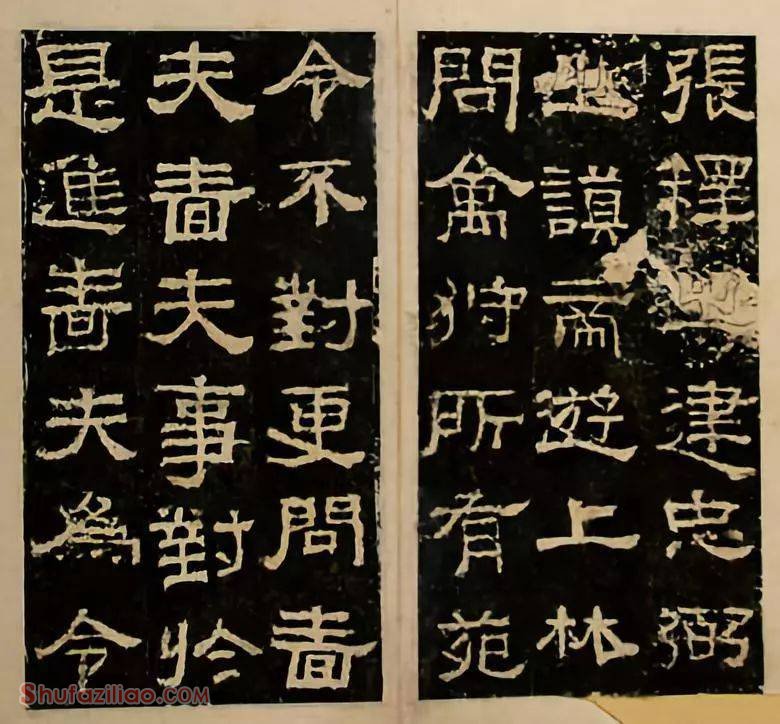 張釋建忠弼
之謨帝遊上林
問禽狩所有苑
令不對更問嗇
夫嗇夫事對於
是進嗇夫為令
Shufaziliao.COM